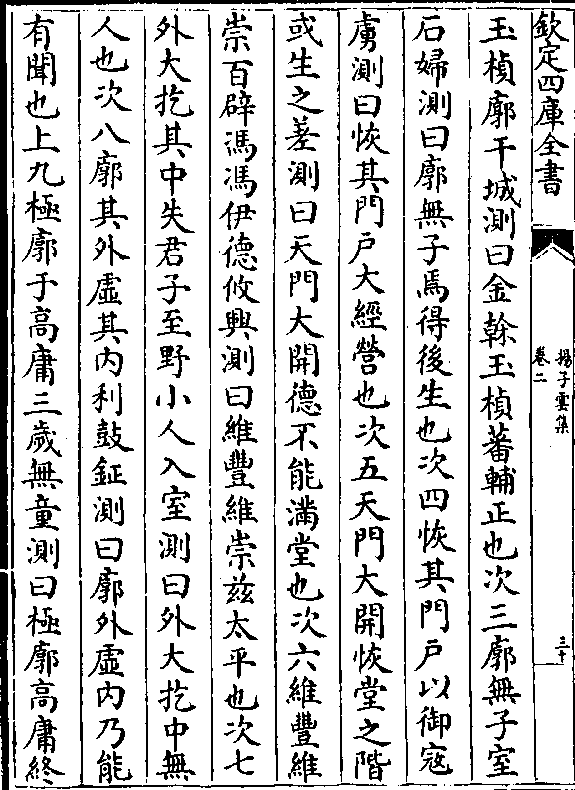 欽定四庫全書
揚子雲集
卷二
三十
玉楨廓于城測曰金榦玉楨蕃輔正也次三廓無子室
石婦測曰廓無子焉得後生也次四恢其門戶以御寇
虜測曰恢其門戶大經營也次五天門大開恢堂之階
或生之差測曰天門大開德不能滿堂也次六維豐維
崇百辟馮馮伊德攸興測曰維豐維崇兹太平也次七
外大扢其中失君子至野小人入室測曰外大扢中無
人也次八廓其外虛其内利鼓鉦測曰廓外虛内乃能
有聞也上九極廓于高庸三歲無童測曰極廓高庸終